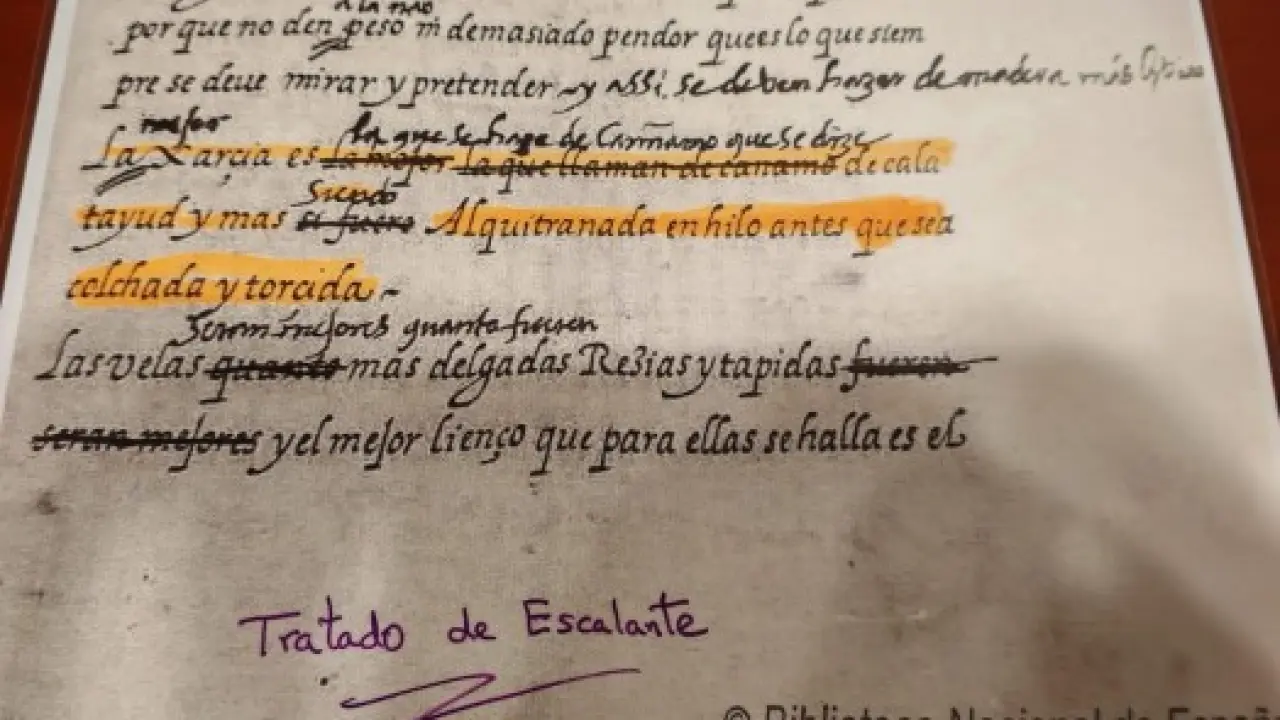 A LA nao
por que no den peso ni demasiado pendor quees lo que siem
pre se deue mirar y pretender y assi se deben hazer de madera más
mejor
la que se haze de Cañamo que se dize
La Xarçia es la mejor la que llaman de canamo de cala
Siendo
tayud y mas si fuere Alquitranada en hilo antes que sea
colchada y torcida
Seran mejores quanto fueren
Las velas quanto mas delgadas Rezias y tapidas fueren
seran mejores y el mejor lienço que para ellas se halla es el
Tratado de Escalante
© Biblioteca Nacional de España